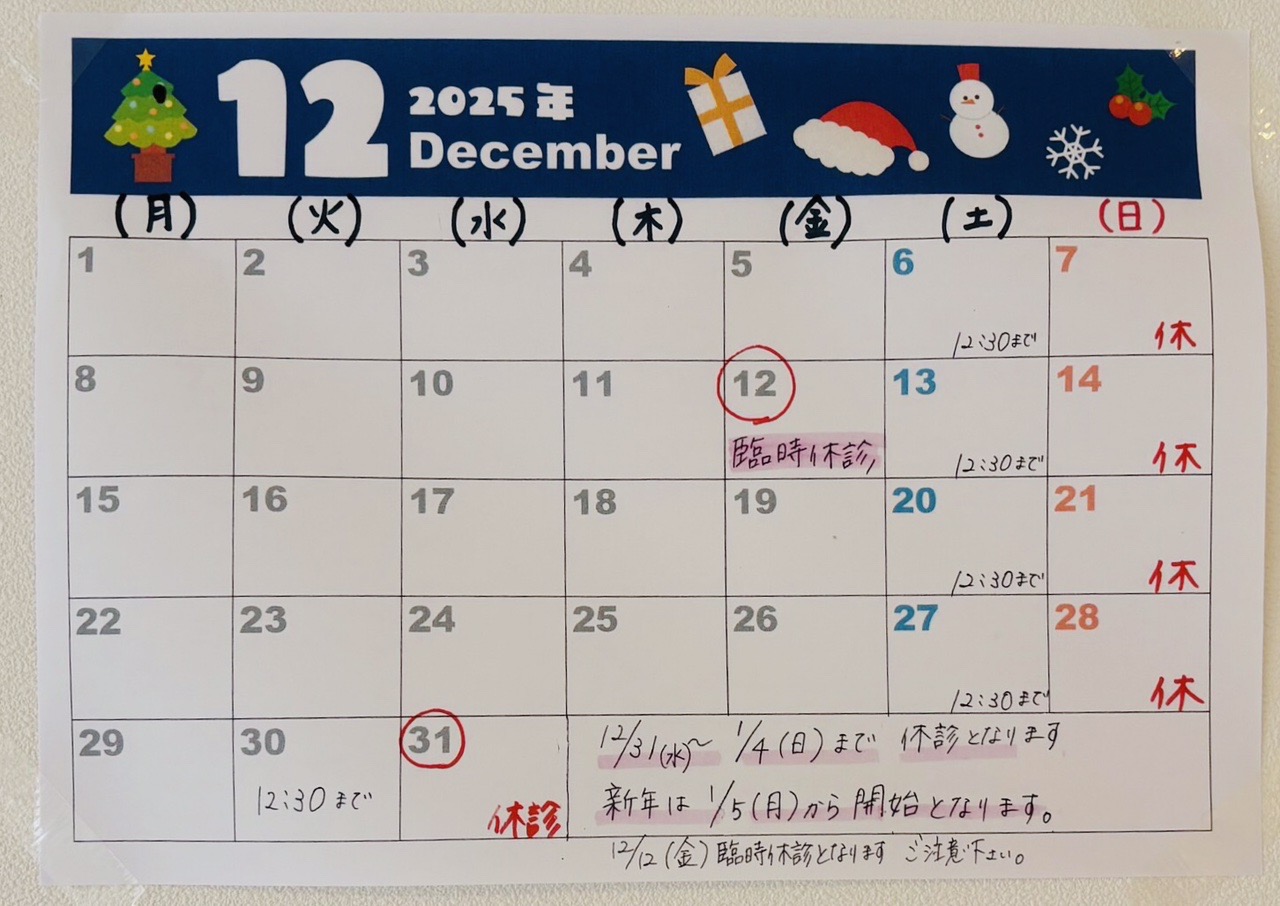 12 2025年
December
(月) (火) (水) (木) (金) (土) (日)
1 2 3 4 5 6 7
12:30まで 休
8 9 10 11 12 13 14
臨時休診 12:30まで 休
15 16 17 18 19 20 21
12:30まで 休
22 23 24 25 26 27 28
12:30まで 休
29 30 31
12:30まで 休診
12/31(水)〜 1/4(日)まで 休診となります
新年は 1/5(月)から開始となります。
12/12(金)臨時休診となります ご注意下さい。